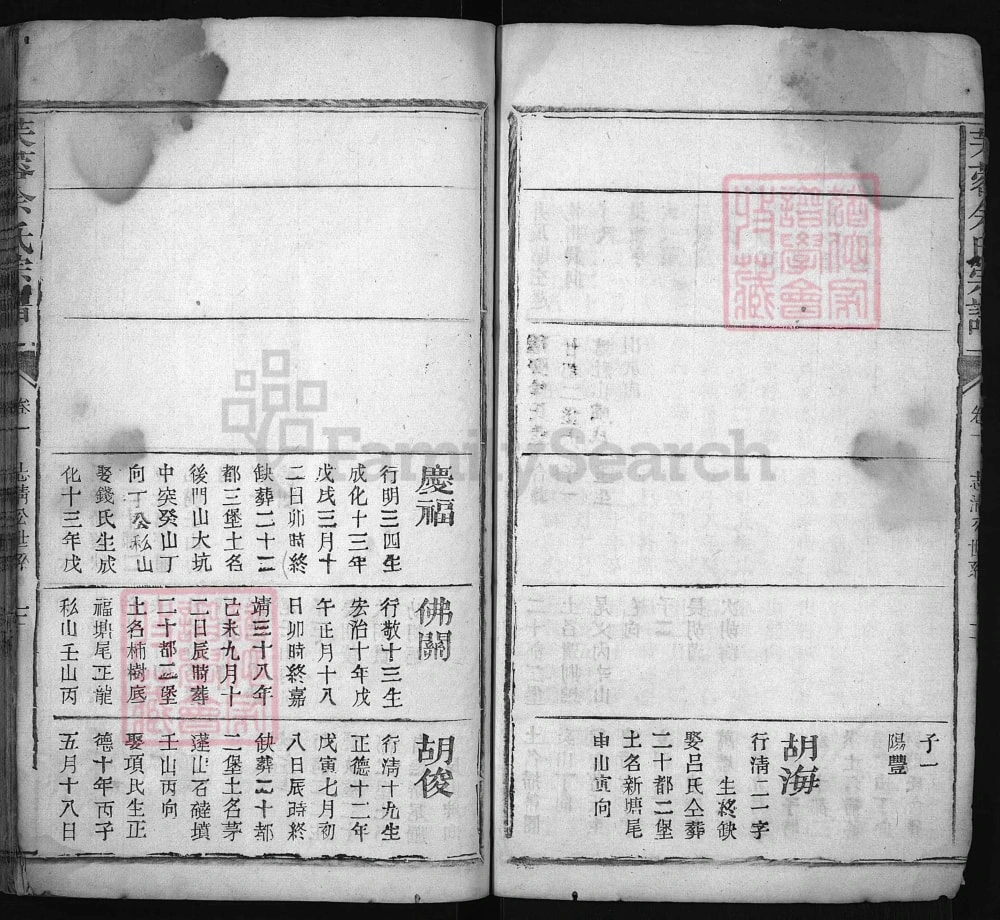 子一
陽豐
胡海
行清二一字
生終缺
娶呂氏仝葬
二十都二堡
土名新𤩹尾
申山寅向
慶福
行明三四生
成化十三年
戊戌三月十
二日卯時終
缺葬二十二
都三堡土名
後門山大坑
中突癸山丁
向丁公私山
娶錢氏生成
化十三年戊
佛關
行敬十三生
宏治十年戊
午正月十八
日卯時終嘉
靖三十八年
己未九月十
二日辰時葬
二十都二堡
土名柿樹底
尾正龍
私山壬山丙
胡俊
行清十九生
正德十二年
戊寅七月初
八日辰時終
缺葬二十都
二堡土名茅
蓬山石磋墳
壬山丙向
娶項氏生正
德十年丙子
五月十八日
芙蓉余氏宗譜
卷一
FamilySearch